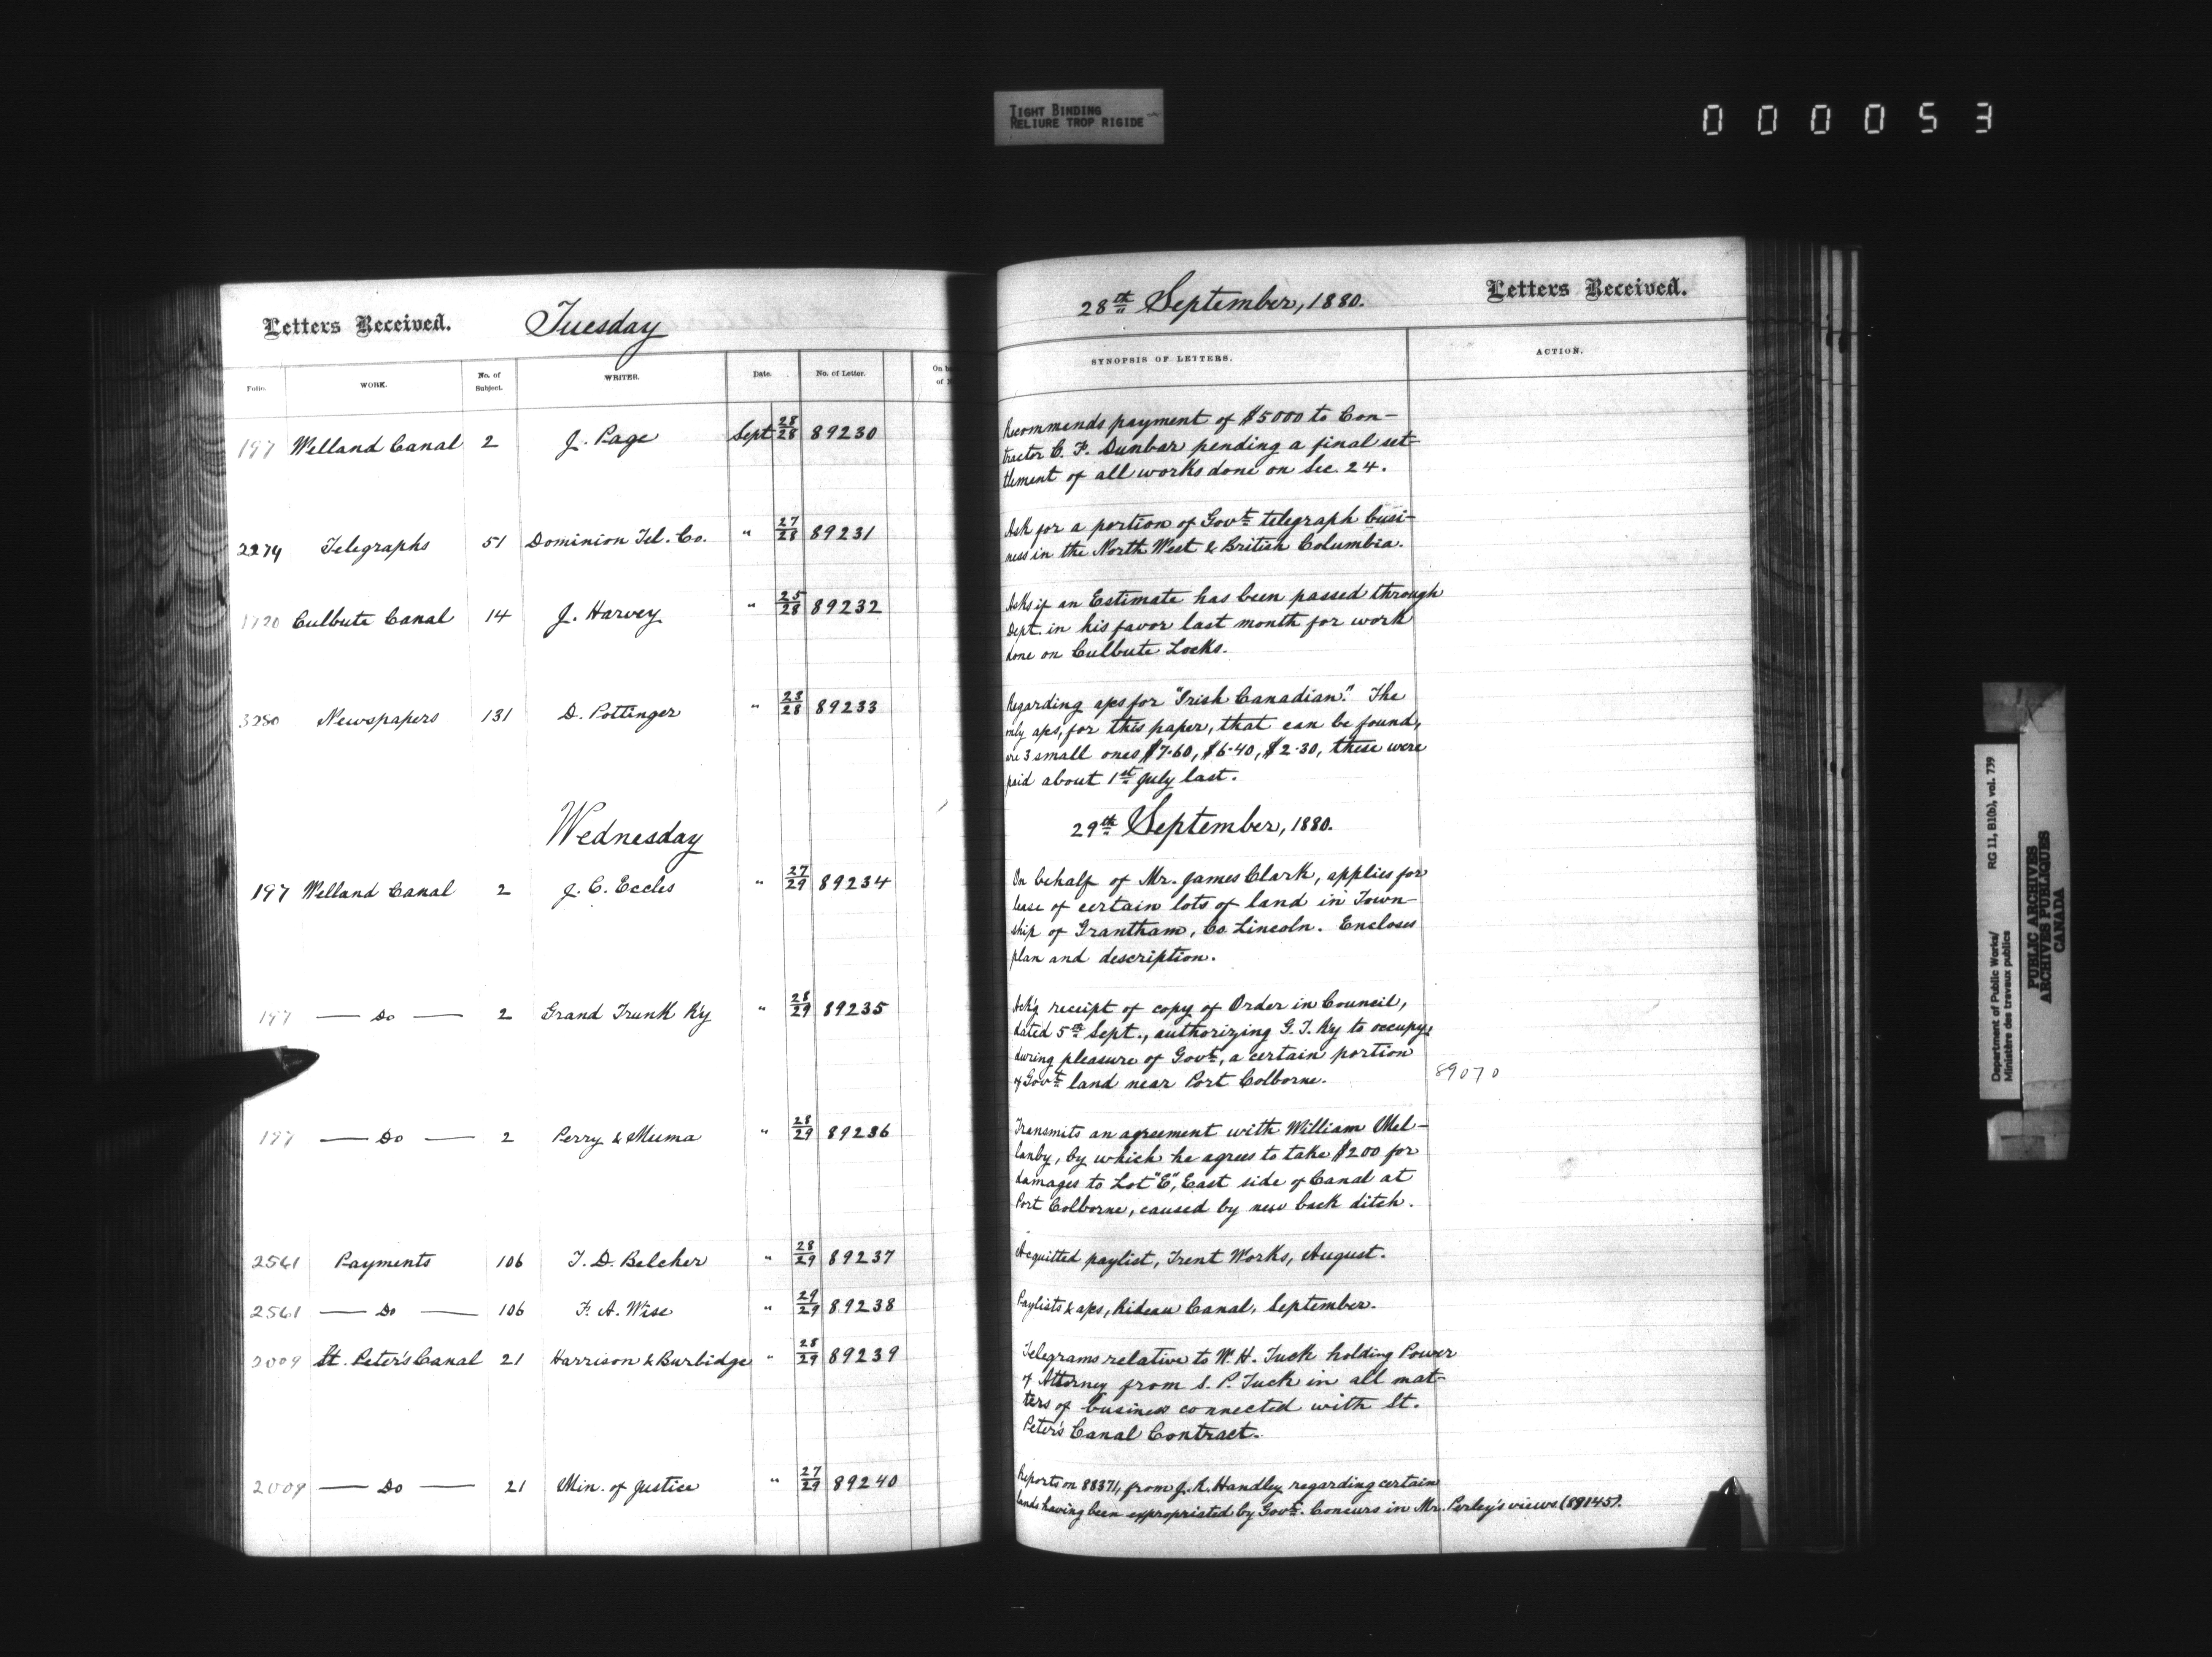 TIGHT BINDING
RELIURE TROP RIGIDE
000053
Letters Received. Tuesday
28th September, 1880. Letters Received.
Folio. WORK. No. of Subject. WRITER. Date. No. of Letter.
SYNOPSIS OF LETTERS. ACTION.
197 Welland Canal 2 J. Page Sept 28/28 89230
Recommends payment of $5000 to Con-
tractor C. F. Dunbar pending a final set-
tlement of all works done on Sec. 24.
2274 Telegraphs 51 Dominion Tel. Co. " 27/28 89231
Ask for a portion of Govt telegraph busi-
ness in the North West & British Columbia.
1720 Culbute Canal 14 J. Harvey " 25/28 89232
Asks if an Estimate has been passed through
Dept. in his favor last month for work
done on Culbute Locks.
3280 Newspapers 131 D. Pottinger " 23/28 89233
Regarding a/cs for "Irish Canadian." The
only a/cs, for this paper, that can be found,
are 3 small ones $7.60, $6.40, $2.30, these were
paid about 1st July last.
Wednesday
29th September, 1880.
197 Welland Canal 2 J. C. Eccles " 27/29 89234
On behalf of Mr. James Clark, applies for
lease of certain lots of land in Town-
ship of Grantham, Co. Lincoln. Encloses
plan and description.
197 — Do — 2 Grand Trunk Ry " 28/29 89235
Ackg receipt of copy of Order in Council,
dated 5th Sept., authorizing G. T. Ry to occupy,
during pleasure of Govt, a certain portion
of Govt land near Port Colborne.
89070
197 — Do — 2 Perry & Muma " 28/29 89236
Transmits an agreement with William Mel-
lanby, by which he agrees to take $200 for
damages to Lot "E", East side of Canal at
Port Colborne, caused by new back ditch.
2561 Payments 106 T. D. Belcher " 28/29 89237
Acquitted paylist, Trent Works, August.
2561 — Do — 106 F. A. Wise " 29/29 89238
Paylists & a/cs, Rideau Canal, September.
2009 St. Peter's Canal 21 Harrison & Burbidge " 28/29 89239
Telegrams relative to W. H. Tuck holding Power
of Attorney from S. P. Tuck in all mat-
ters of business connected with St.
Peter's Canal Contract.
2009 — Do — 21 Min. of Justice " 27/29 89240
Report on 88371, from J. R. Handley regarding certain
lands having been expropriated by Govt. Concurs in Mr. Perley's views (89145).
Department of Public Works/ RG 11, B10(b), vol. 739
Ministère des travaux publics
PUBLIC ARCHIVES
ARCHIVES PUBLIQUES
CANADA